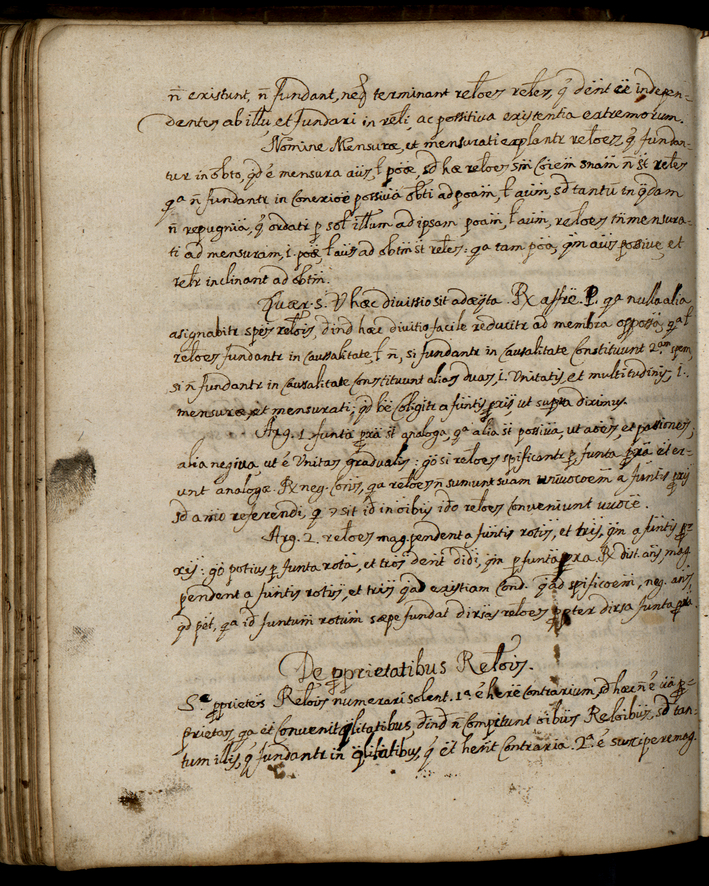 n̄ existunt, n̄ fundant, neq terminant reloes reles, q̄ dent ēē indepen=
dentes ab illu et fundari in reli, ac possitiva existentia extremorum.
Nomine Mensuræ, et mensurati explantr reloes, q̄ fundan=
tur in obto, qd é mensura aus, ł poæ, sd hæ reloes sm̄ Coiem snam n̄ st reles
qa n̄ fundantr in Conexioē possiva obti ad poam, ł aum, sd tantu in qdam
n̄ repugnia, q̄ ordatr p sol illum ad ipsam poam, ł aum, reloes tn̄ mensura=
ti ad mensuram, i. poæ, ł aus ad obtm̄ st reles: qa tam poa, qm aus possive, et
relr inclinant ad obtm̄.
Quær. s. V hæc divissio sit adæqta. R affre. P. qa nulla alia
asignabitr spēs relois, dind hæc divitio facile reducitr ad membra opposo, qa ł
reloes fundantr in Caussalitate, ł n̄, si fundantr in Causalitate Constituunt 2am spem,
si n̄ fundantr in Causalitate Constituunt alias duas, i. Unitatis, et multitudinis, i.
mensuræ, et mensurati; qd bē Coligitr a funtis pris ut supra diximus.
Arg. 1. funta pra st analoga, qa alia st possiva, ut aoes, et passiones,
alia negiva, ut é Unitas gradualis: go si reloes spificantr p funta pra et er=
unt analogæ. R neg. Cons, qa reloes n̄ sumunt suam unuvocoem a funtis pris
sd a mo referendi, q cs sit id in oibus ido reloes Conveniunt uvoce.
Arg. 2. reloes mag. pendent a funtis rotis, et tris, qm a funtis p=
xis: go potius p funta rota, et troi dent didi, qm p funta pra. R dist. ans, mag.
pendent a funtis rotis, et tris qad existiam Cond. qad spificoem, neg. ans,
qd pet, qa id funtum rotum sæpe fundat dirsas reloes ppter dirsa funta pra.
De pprietatibus Relois.
Se pprietes Relois numerari solent. 1a é here Contrarium, sd hæc n̄ é va p=
prietas, qa et Convenit qlitatibus, dind n̄ Competunt oibus Reloibus, sd tan=
tum illis, q̄ fundantr in qlitatibus, q̄ et hent Contraria. 2a é suscipere mag.